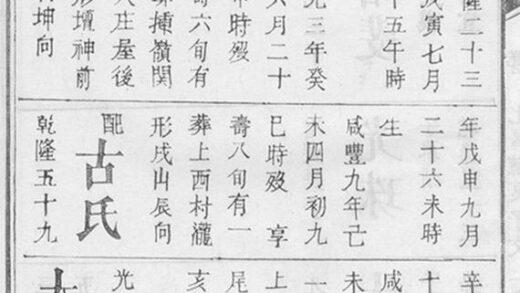 隆二十三
戊寅七月
十五午時
光三年癸
六月二十
時歿
壽六旬有
揷嶺關
庄屋後
形壇神前
坤向
年戊申九月
二十六未時
生
咸豐九年己
未四月初九
巳時歿 享
壽八旬有一
葬上西村瀧
形戌山辰向
配古氏
乾隆五十九
辛
十
咸
未
一
上
尾
亥
光